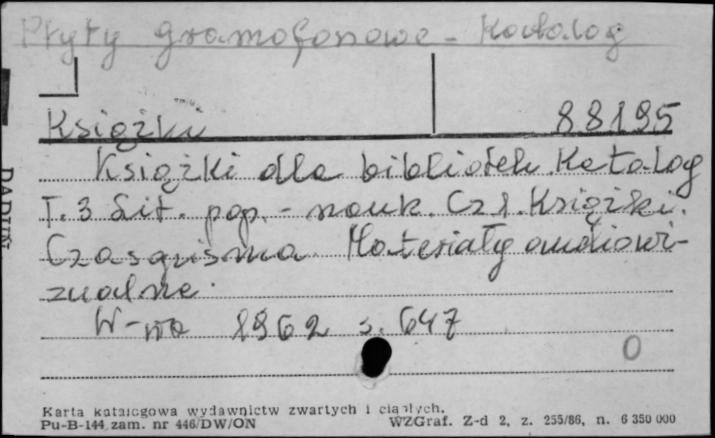 Płyty gramofonowe - Katalog
Książki 88195
Książki dla bibliotek. Katalog
T. 3 Lit. pop. - nauk. Cz 1. Książki.
Czasopisma. Materiały audiowi-
zualne.
W-wa 1962 s. 647
0
Karta katalogowa wydawnictw zwartych i ciągłych.
Pu-B-144 zam. nr 446/DW/ON WZGraf. Z-d 2, z. 255/86, n. 6 350 000